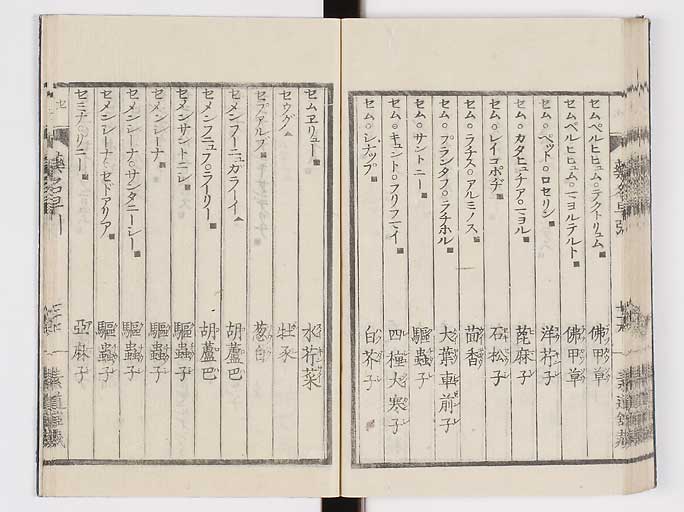 セムペルヒヒュム○テクトリュム 佛甲草
セムペルヒヒュム○マヨルテルト 佛甲草
セム○ペット○ロセリン 洋芥子
セム○カタヒュチア○マヨル 蓖麻子
セム○レイコポヂ 石松子
セム○ラチス○アルミノス 茴香
セム○プランタフ○ラチホル 大葉車前子
セム○サントニー 驅蟲子
セム○キュント○フリフマイ 四種大寒子
セム○シナップ 白芥子
セムヱリュー 水芹菜
セウグ
セプアルブ 葱白
セメンフーニュガラーイ 胡蘆巴
セメンフニュフ○ラーリー 胡蘆巴
セメンサントニレ 驅蟲子
セメンレーナ 驅蟲子
セメンレーナ○サンタニーレー 驅蟲子
セメンレーナ○セドアリア 驅蟲子
セミナ○リニー 亞麻子